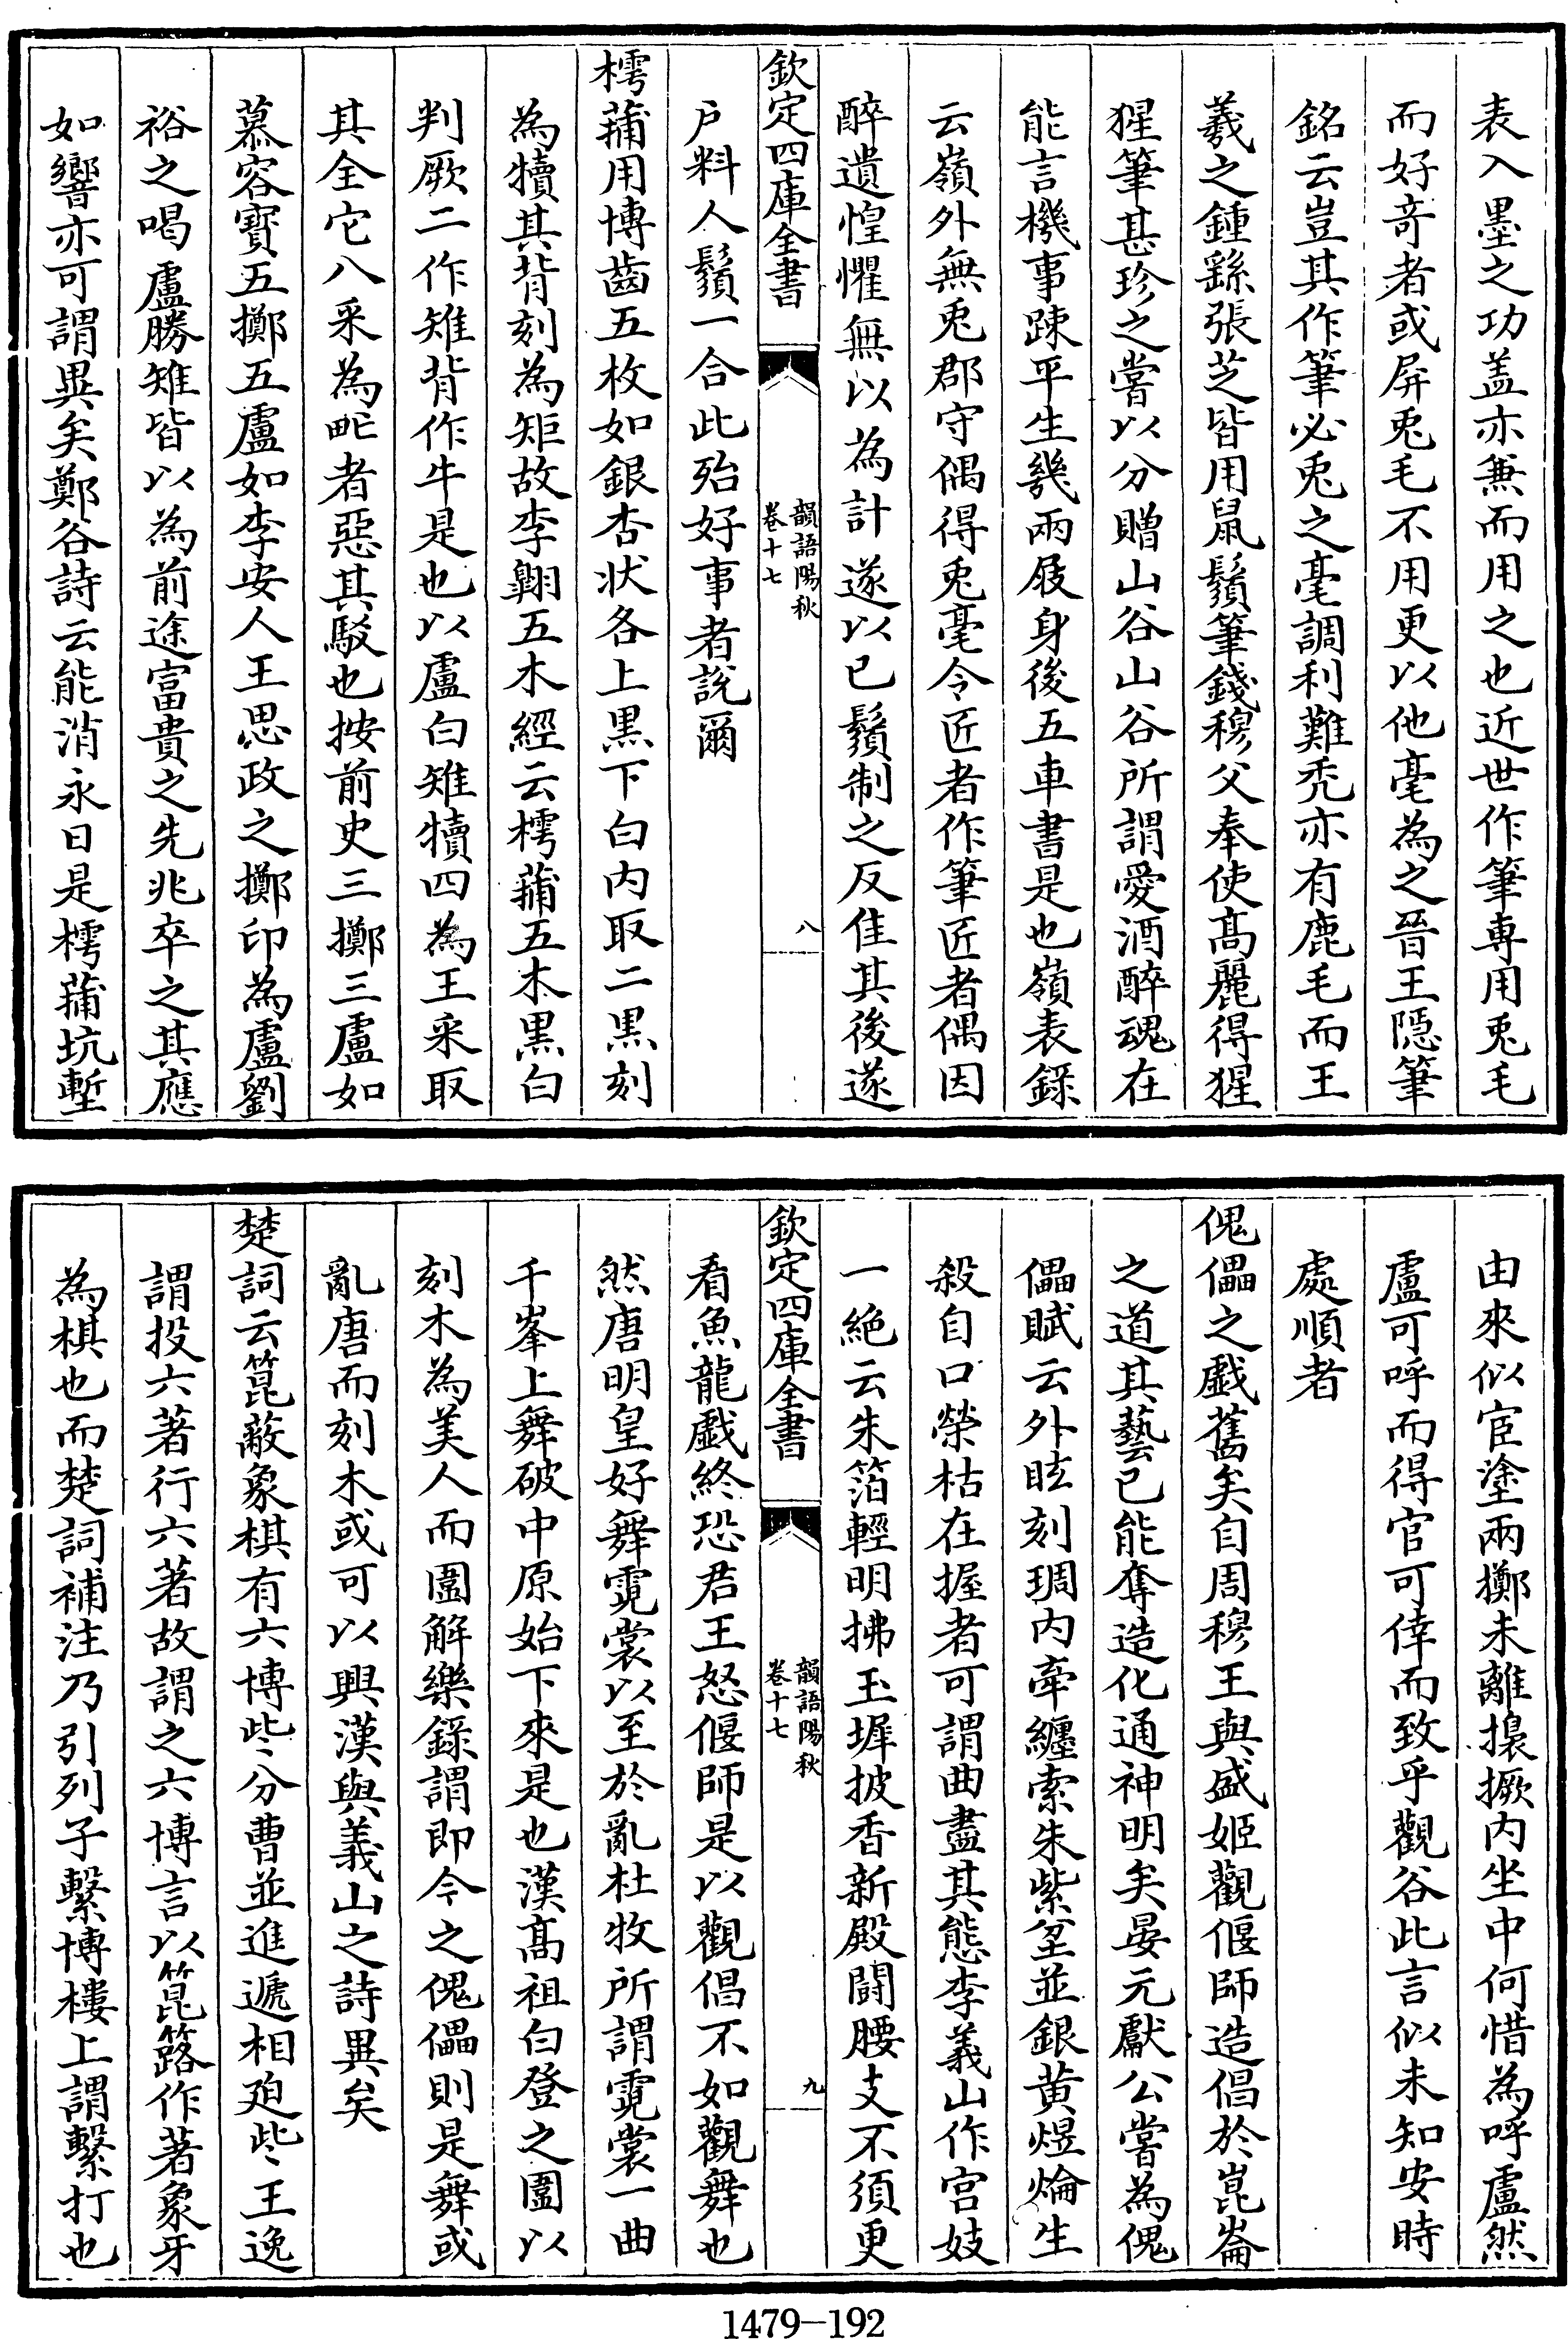 表入墨之功盖亦兼而用之也近世作筆専用兎毛
而好竒者或屏兎毛不用更以他毫為之晉王隠筆
銘云豈其作筆必兎之毫調利難秃亦有鹿毛而王
羲之鍾繇張芝皆用鼠鬚筆錢穆父奉使髙麗得猩
猩筆甚珍之嘗以分贈山谷山谷所謂愛酒醉魂在
能言機事踈平生幾兩屐身後五車書是也嶺表録
云嶺外無兎郡守偶得兎毫令匠者作筆匠者偶因
醉遺惶懼無以為計遂以已鬚制之反佳其後遂
欽定四庫全書
韻語陽秋
卷十七
八
户料人鬚一合此殆好事者説爾
樗蒱用博齒五枚如銀杏状各上黒下白内取二黒刻
為犢其背刻為矩故李翺五木經云樗蒱五木黒白
判厥二作雉背作牛是也以盧白雉犢四為王采取
其全它八采為甿者惡其駁也按前史三擲三盧如
慕容寳五擲五盧如李安人王思政之擲印為盧劉
裕之喝盧勝雉皆以為前途富貴之先兆卒之其應
如響亦可謂異矣鄭谷詩云能消永日是樗蒱坑塹
由來似宦塗兩擲未離撄撅内坐中何惜為呼盧然
盧可呼而得官可倖而致乎觀谷此言似未知安時
處順者
傀儡之戯舊矣自周穆王與盛姬觀偃師造倡於崑崙
之道其藝已能奪造化通神明矣晏元獻公嘗為傀
儡賦云外眩刻琱内牽纏索朱紫坌並銀黄煜爚生
殺自口榮枯在握者可謂曲盡其態李義山作宫妓
一絶云朱箔輕明拂玉墀披香新殿鬪腰支不須更
欽定四庫全書
韻語陽秋
卷十七
九
看魚龍戯終恐君王怒偃師是以觀倡不如觀舞也
然唐明皇好舞霓裳以至於亂杜牧所謂霓裳一曲
千峯上舞破中原始下來是也漢髙祖白登之圍以
刻木為美人而圍解樂録謂即今之傀儡則是舞或
亂唐而刻木或可以興漢與義山之詩異矣
楚詞云箟蔽象棋有六博些分曹並進遞相廹些王逸
謂投六著行六著故謂之六博言以箟簬作著象牙
為棋也而楚詞補注乃引列子繫博樓上謂繫打也
1479—192